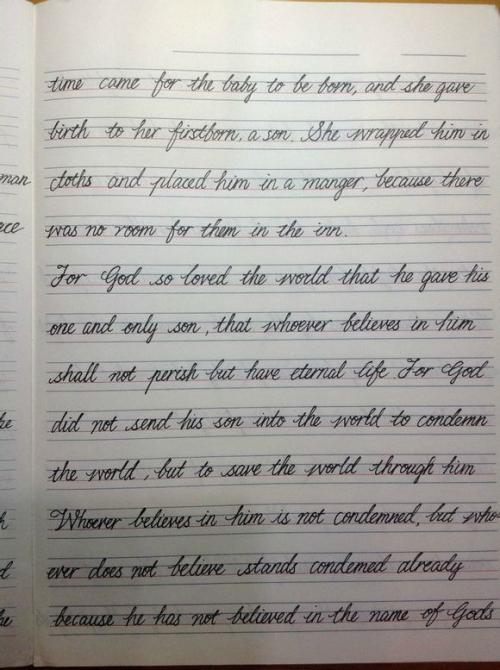 time came for the baby to be born, and she gave
birth to her firstborn, a son. She wrapped him in
man cloths and placed him in a manger, because there
ece was no room for them in the inn.
For God so loved the world that he gave his
one and only son, that whoever believes in him
shall not perish but have eternal life For God
he did not send his son into the world to condemn
the world, but to save the world through him
h Whoever believes in him is not condemned, but who-
d ever does not believe stands condemed already
he because he has not believed in the name of Gods